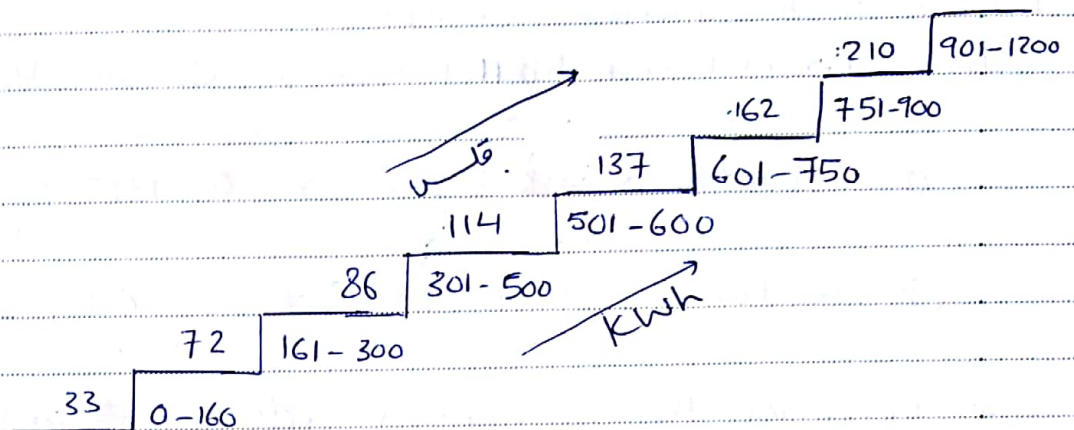 210 901-1200
162 751-900
137 601-750
114 501-600
86 301-500
72 161-300
33 0-160
فلس
KWh